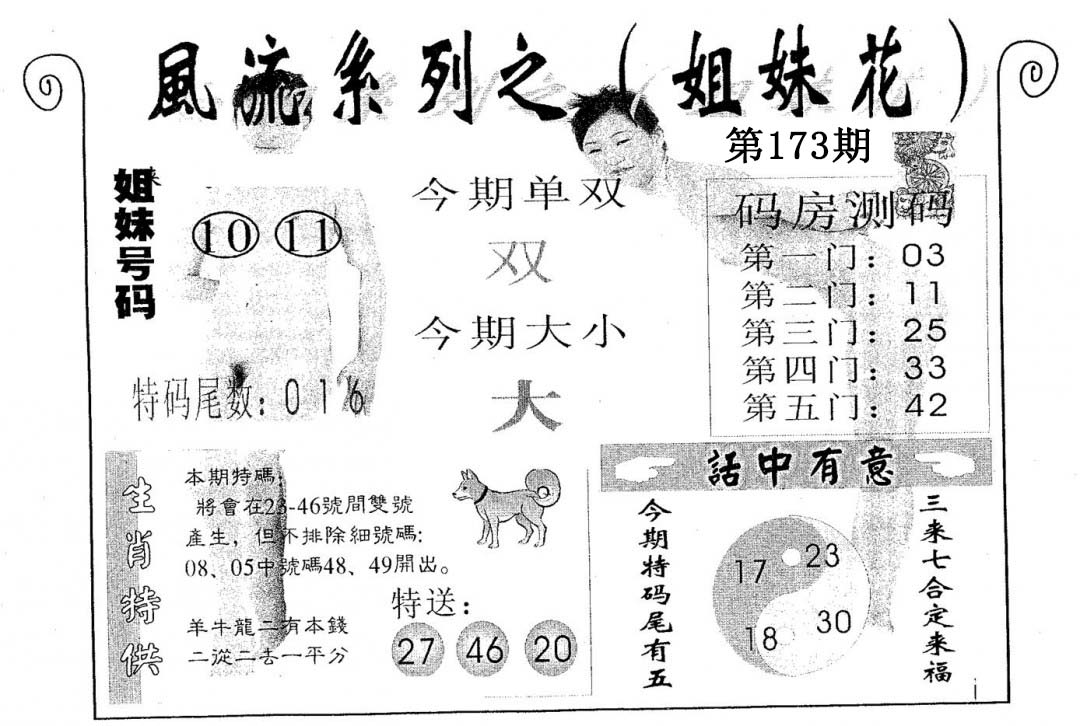 風流系列之（姐妹花）
第173期
姐妹号码
10 11
特码尾数：016
今期单双
双
今期大小
大
码房测码
第一门：03
第二门：11
第三门：25
第四门：33
第五门：42
生肖特供
本期特碼：
將會在23-46號間雙號
產生，但不排除細號碼：
08、05中號碼48、49開出。
羊牛龍二有本錢
二從二去一平分
特送：
27 46 20
話中有意
今期特码尾有五
17 23
18 30
三来七合定来福